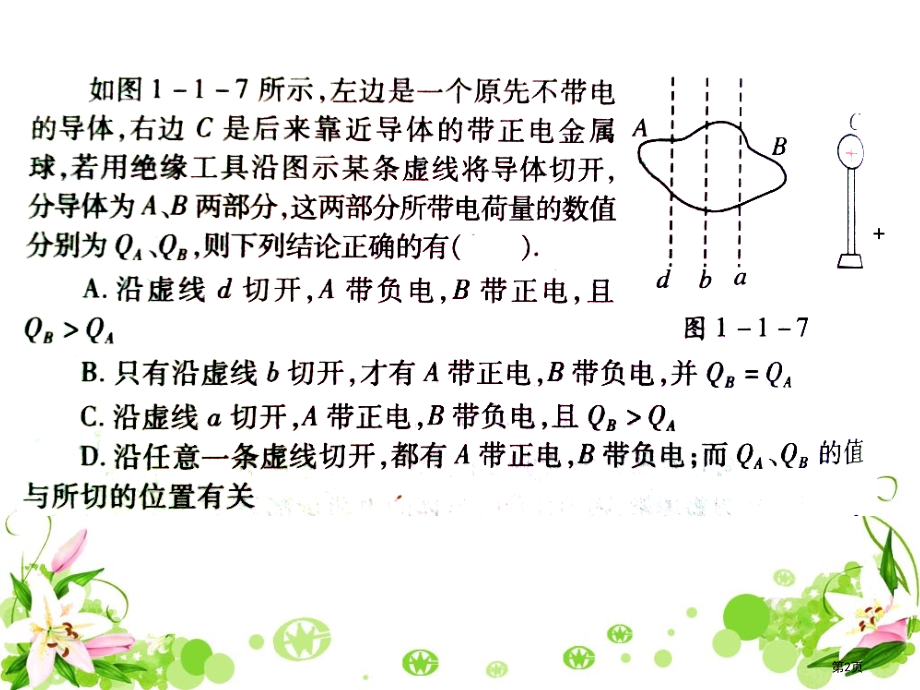 如图1-1-7所示,左边是一个原先不带电
的导体,右边C是后来靠近导体的带正电金属
球,若用绝缘工具沿图示某条虚线将导体切开,
分导体为A、B两部分,这两部分所带电荷量的数值
分别为Q_A、Q_B,则下列结论正确的有(    ).
A.沿虚线d切开,A带负电,B带正电,且
Q_B>Q_A
B.只有沿虚线b切开,才有A带正电,B带负电,并Q_B=Q_A
C.沿虚线a切开,A带正电,B带负电,且Q_B>Q_A
D.沿任意一条虚线切开,都有A带正电,B带负电;而Q_A、Q_B的值
与所切的位置有关
A
B
C
+
+
d b a
图1-1-7
第2页